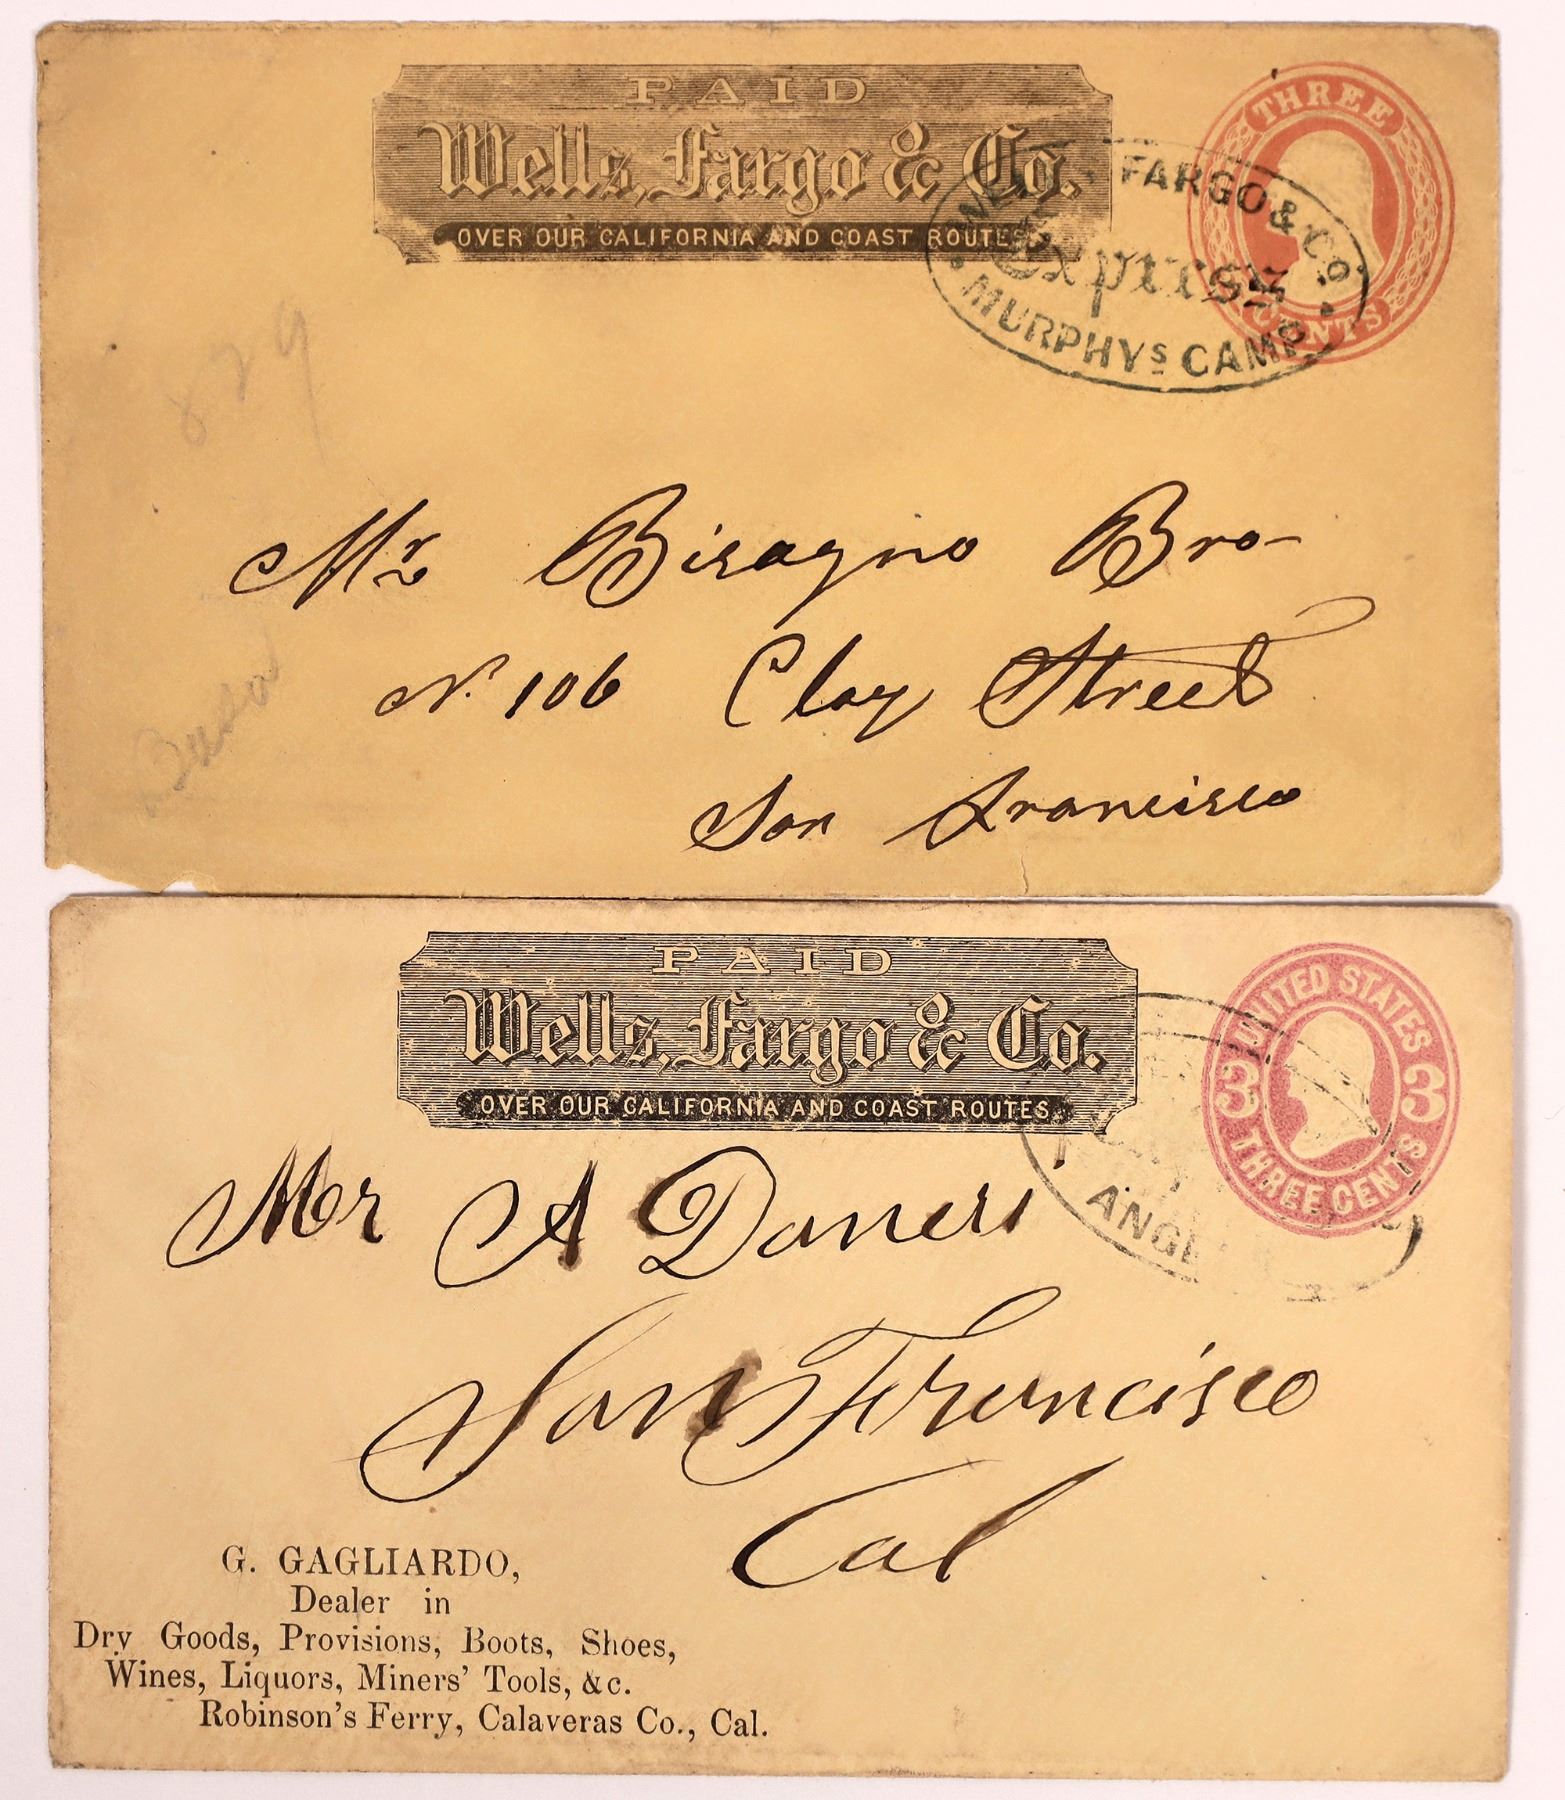 PAID
Wells, Fargo & Co.
OVER OUR CALIFORNIA AND COAST ROUTES
THREE
CENTS
WELLS FARGO & CO.
Express
MURPHYS CAMP
829
Mr Bisagno Bro-
N. 106 Clay Street
San Francisco
PAID
Wells, Fargo & Co.
OVER OUR CALIFORNIA AND COAST ROUTES.
UNITED STATES
3 3
THREE CENTS
ANGE
Mr A Daneri
San Francisco
Cal
G. GAGLIARDO,
Dealer in
Dry Goods, Provisions, Boots, Shoes,
Wines, Liquors, Miners' Tools, &c.
Robinson's Ferry, Calaveras Co., Cal.